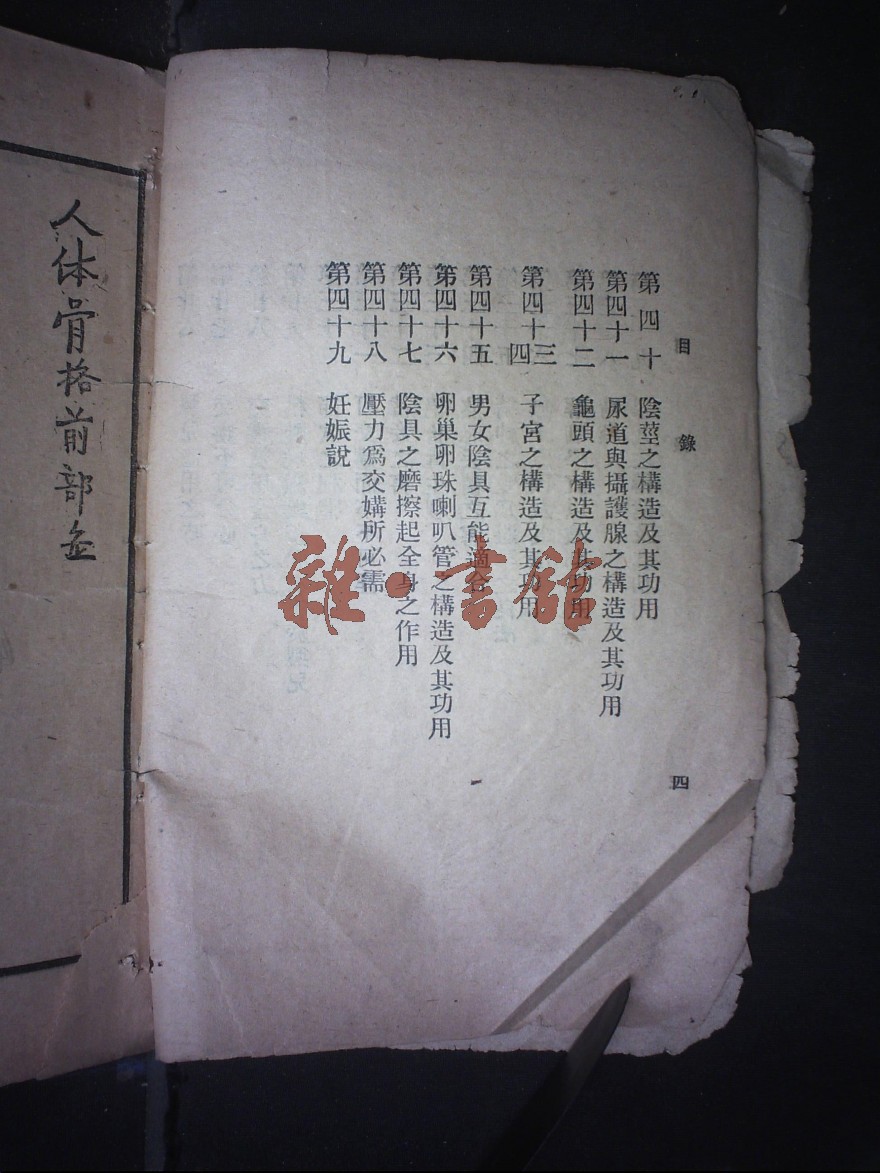 目錄
四
第四十 陰莖之構造及其功用
第四十一 尿道與攝護腺之構造及其功用
第四十二 龜頭之構造及其功用
第四十三四 子宮之構造及其功用
第四十五 男女陰具互能適合
第四十六 卵巢卵珠喇叭管之構造及其功用
第四十七 陰具之磨擦起全身之作用
第四十八 壓力爲交媾所必需
第四十九 妊娠說
人体骨格前部
雜·書館